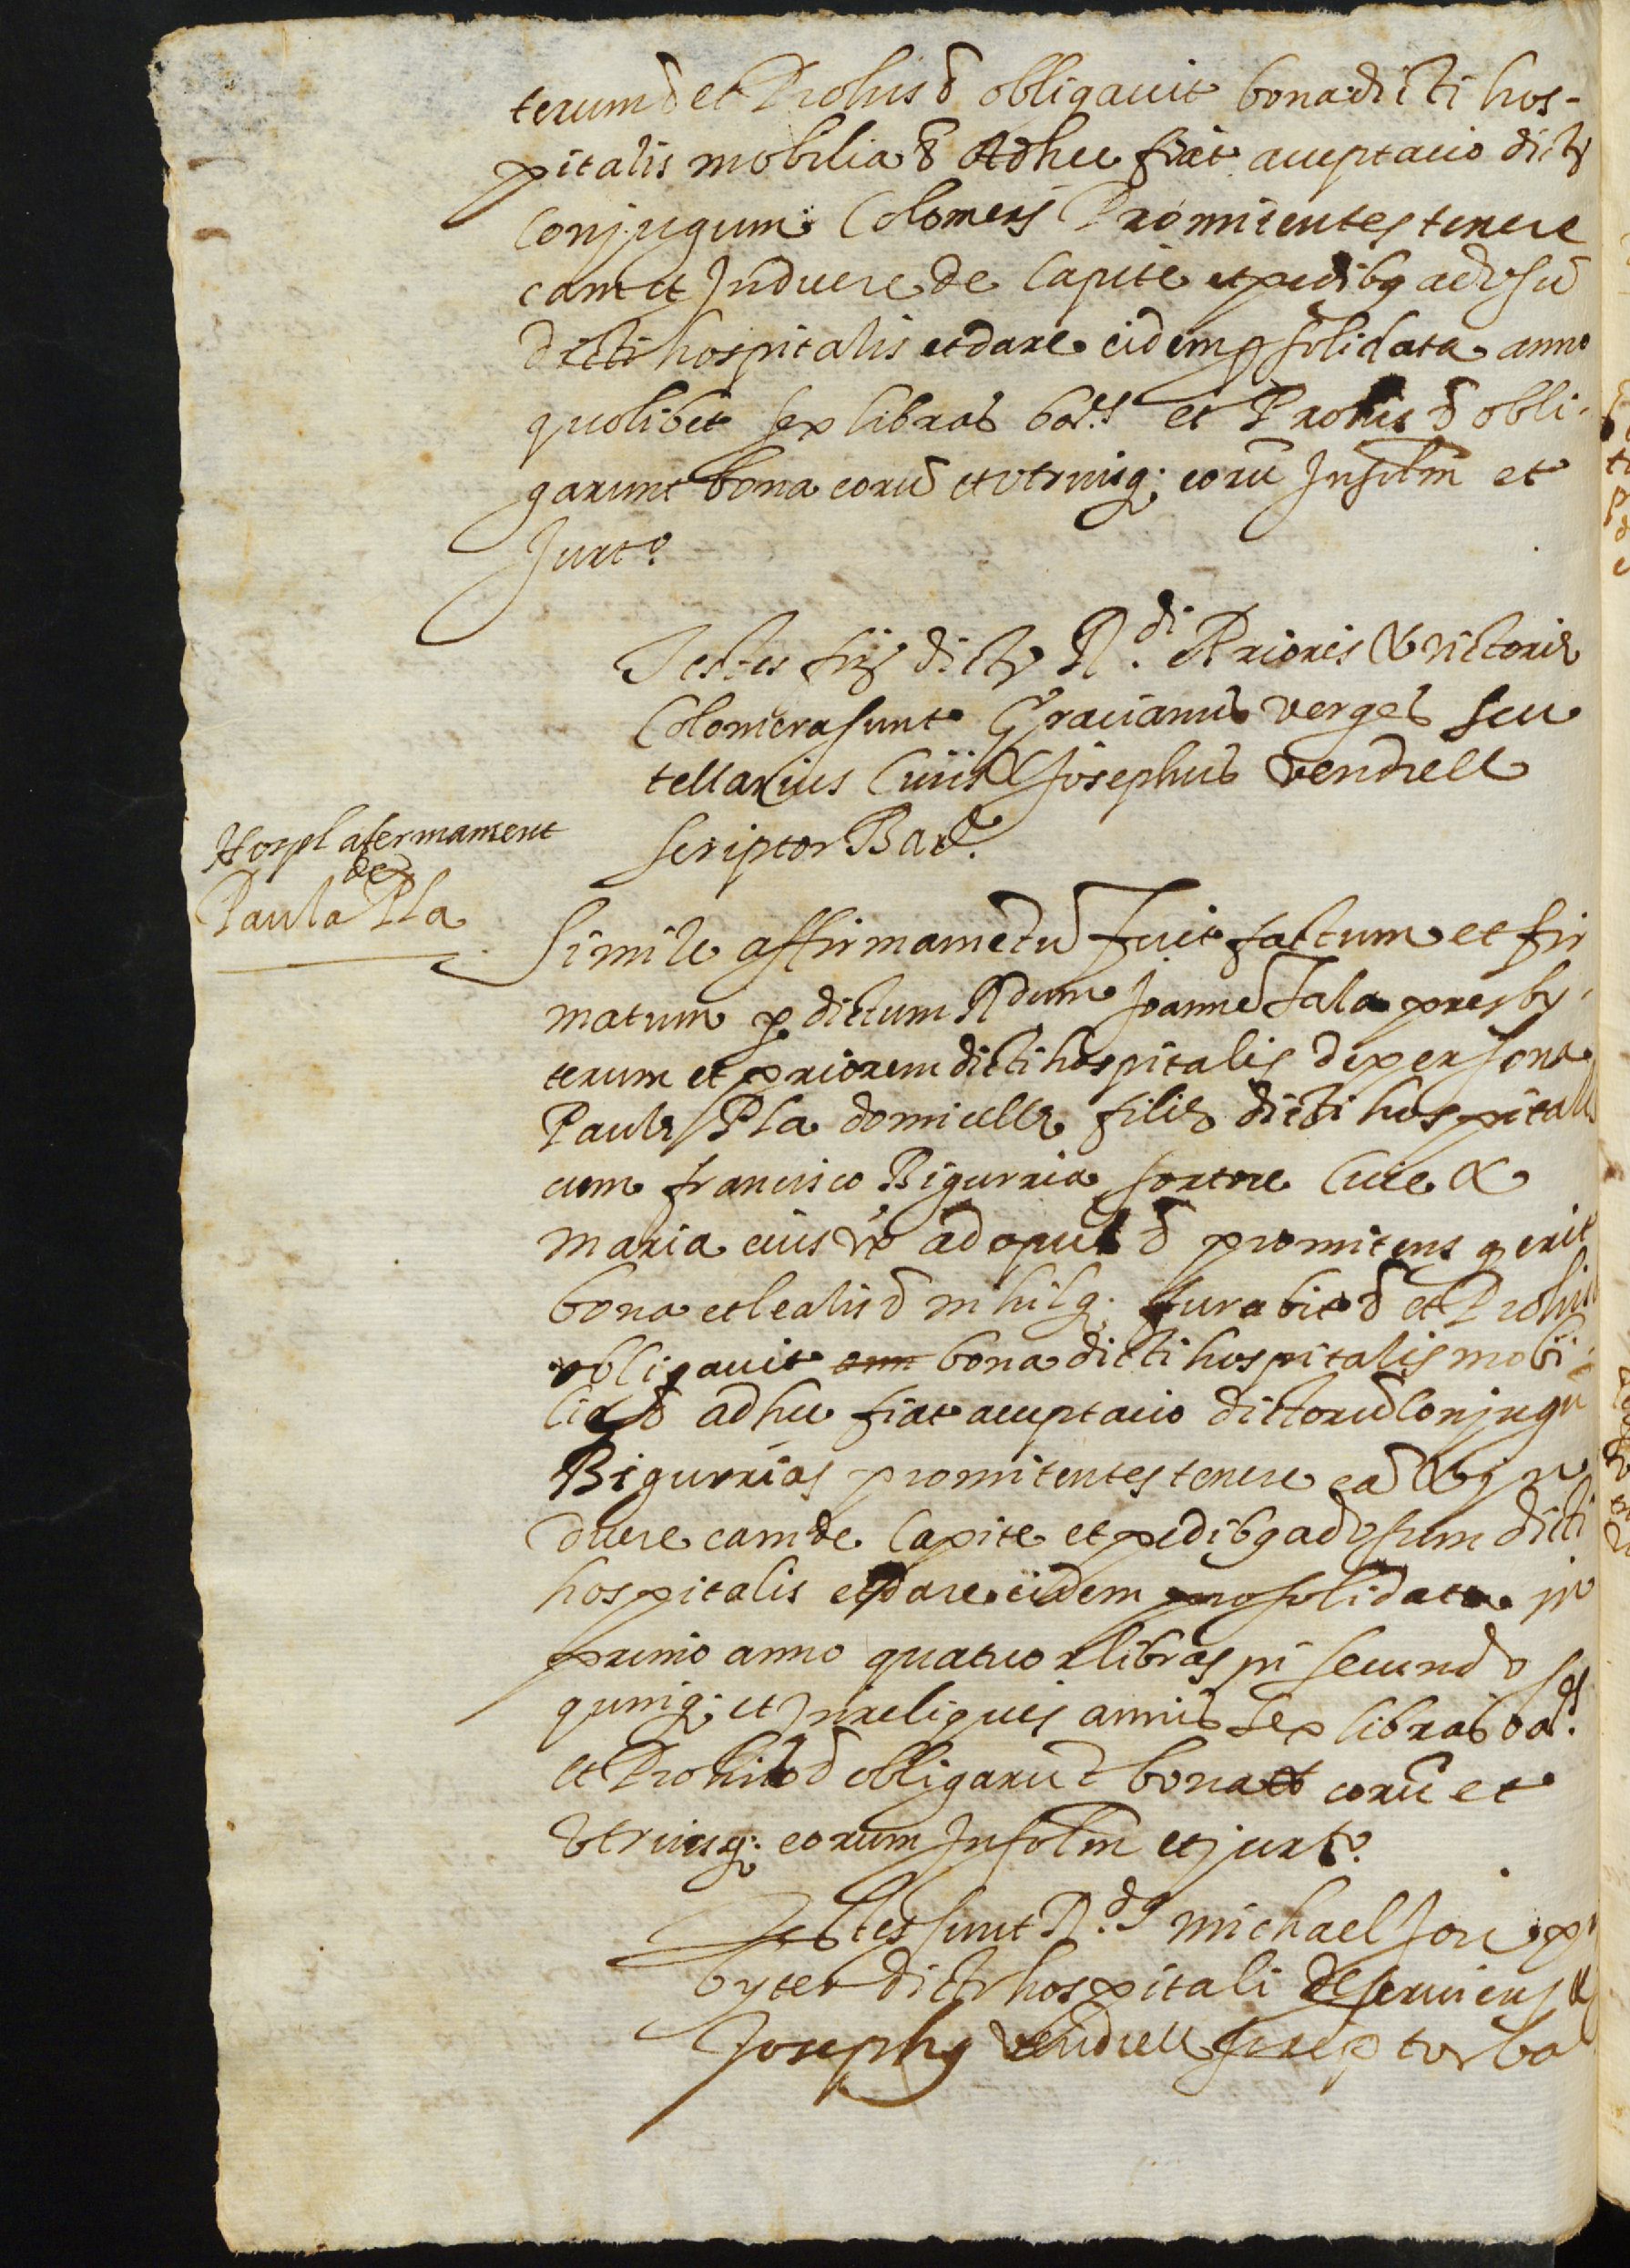 terum & et Prohis & obligavit bona dicti hos-
pitalis mobilia & Ad hec fiat acceptacio dictȩ
Conjugum Colomers Promitentes tenere
eam et Induere de Capite et pedibq ad usū
dicti hospitalis et dare eidem p solidata anno
quolibet sex libras bar.s et Prohis & obli-
garunt bona eorū et utriusq; eorū Insolm et
Jurt.o
Testes firȩ dictȩ R.di Prioris & victoriȩ
Colomera sunt Gracianus verges scu
tellarius Civis & Josephus vendrell
scriptor Bar.e
Hospl afermament
de
Paula Pla
Simile affirmamētū fuit factum et fir
matum p dictum Rdum Joannē Sala presby-
terum et priorem dicti hospitalis de persona
Paulȩ Pla domicellȩ filiȩ dicti hospitalis
cum francisco Bigurria sortore Cive &
maria eius ux ad opus & promitens q erit
bona et lealis & nihilq; furabit & et Prohis
obligavit bona dicti hospitalis mobi-
lia & ad hec fiat acceptacio dictorū Conjugū
Bigurrias promitentes tenere eā & in
duere eam de Capite et pedibq ad usum dicti
hospitalis et dare eidem pro solidata in
primo anno quatuor libras in secundo
quinq; et In reliquis annis sex libras bar.s
et Prohis & obligarūt bona eorū et
utriusq; eorum Insolm et jurt.o
Testes sunt R.dq michael Jori
byter dicti hospitali deserviens &
Josephq vendrell scriptor bar